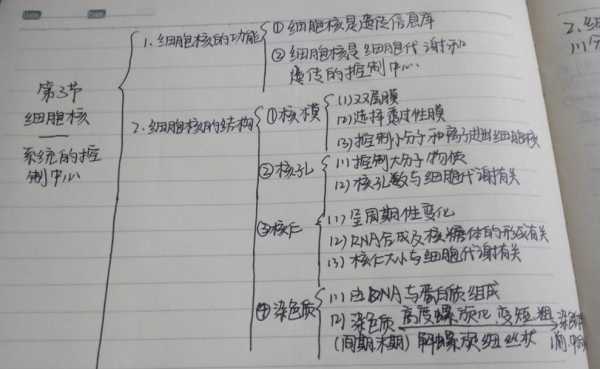 第3节
细胞核
系统的控
制中心
1.细胞核的功能
①细胞核是遗传信息库
②细胞核是细胞代谢和
遗传的控制中心
2.细胞核的结构
①核膜
(1)双层膜
(2)选择透过性膜
(3)控制小分子和离子进出细胞核
②核孔
(1)控制大分子物质
(2)核孔数与细胞代谢有关
③核仁
(1)呈周期性变化
(2)RNA合成及核糖体的形成有关
(3)核仁大小与细胞代谢有关
④染色质
(1)由DNA与蛋白质组成
(2)染色质 高度螺旋化 变短粗 染色体
(周期末期) 解螺旋细丝状
2.细